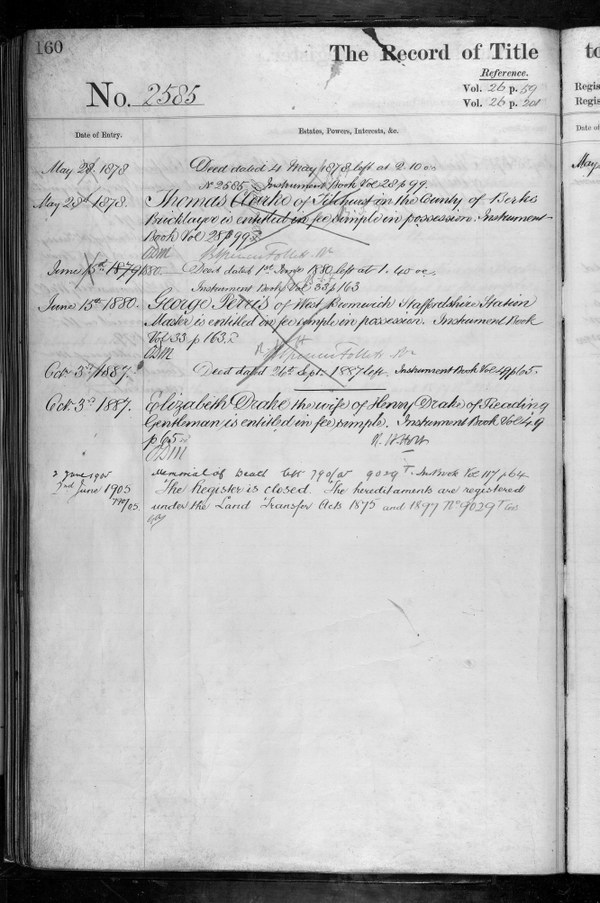 160
The Record of Title
to
Reference.
No. 2585
Vol. 26 p. 59
Vol. 26 p. 201
Regis
Regis
Date of Entry.
Estates, Powers, Interests, &c.
Date of
May 28. 1878
Deed dated 4 May 1878 left at 2.10 oc
May
No 2585. Instrument Book Vol 28 p 99.
May 28th 1878.
Thomas Clarke of Tilehurst in the County of Berks
Bricklayer is entitled in fee simple in possession. Instrument
Book Vol 28 p 99
Spencer Follett
June 15th 1879 1880.
Deed dated 1st June 1880 left at 1.40 oc
Instrument Book Vol 33 p 163
June 15th 1880.
George Perris of West Bromwich Staffordshire Station
Master is entitled in fee simple in possession. Instrument Book
Vol 33 p 163.
Spencer Follett
Oct. 3rd 1887.
Deed dated 26th Sept. 1887 left. Instrument Book Vol 49 p 65.
Oct. 3rd 1887.
Elizabeth Drake the wife of Henry Drake of Reading
Gentleman is entitled in fee simple. Instrument Book Vol 49
p 65
2 June 1905
Memorial of Death 790/05 9029 T. In. Book Vol 117 p 64
2nd June 1905
The Register is closed. The hereditaments are registered
790/05
under the Land Transfer Acts 1875 and 1897 No 9029 T